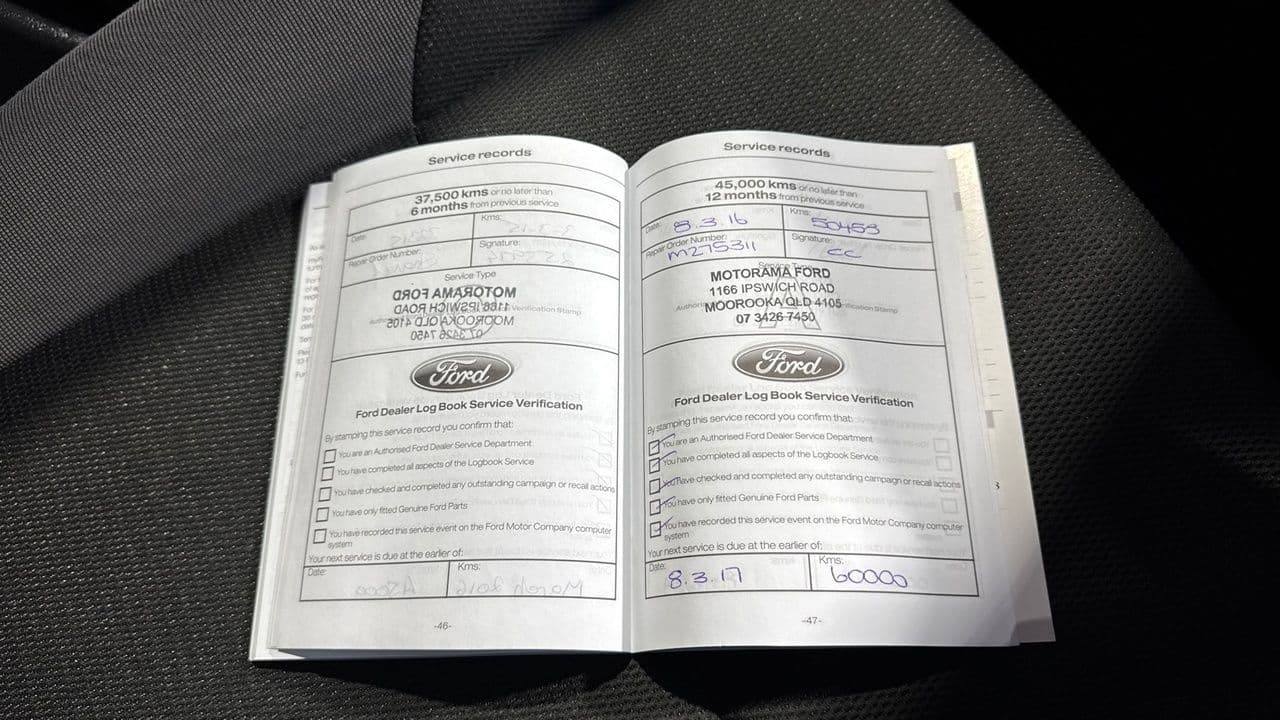 Service records
37,500 kms or no later than
6 months from previous service
Date:
Kms:
Repair Order Number:
Signature:
Service Type
MOTORAMA FORD
1166 IPSWICH ROAD
MOOROOKA QLD 4105
07 3426 7450
Verification Stamp
Ford
Ford Dealer Log Book Service Verification
By stamping this service record you confirm that:
You are an Authorised Ford Dealer Service Department
You have completed all aspects of the Logbook Service
You have checked and completed any outstanding campaign or recall actions
You have only fitted Genuine Ford Parts
You have recorded this service event on the Ford Motor Company computer
system
Your next service is due at the earlier of:
Date:
Kms:
March 2016
45000
-46-
Service records
45,000 kms or no later than
12 months from previous service
Date: 8.3.16
Kms: 50453
Repair Order Number:
M275311
Signature:
CC
Service Type
MOTORAMA FORD
1166 IPSWICH ROAD
MOOROOKA QLD 4105
07 3426 7450
Ford
Ford Dealer Log Book Service Verification
By stamping this service record you confirm that:
You are an Authorised Ford Dealer Service Department
You have completed all aspects of the Logbook Service
You have checked and completed any outstanding campaign or recall actions
You have only fitted Genuine Ford Parts
You have recorded this service event on the Ford Motor Company computer
system
Your next service is due at the earlier of:
Date: 8.3.17
Kms: 60000
-47-